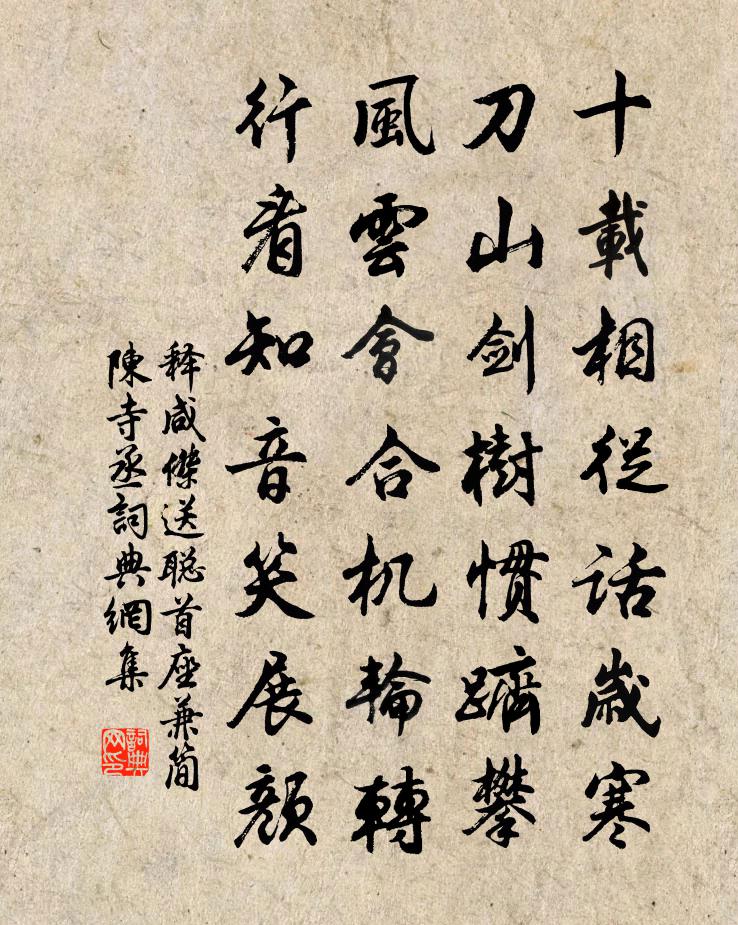 十載相從話歲寒
刀山剑樹慣躋攀
風雲會合机輪轉
行看知音笑展顔
释咸傑送聪首座兼简
陳寺丞詞典網集
詞典
网印